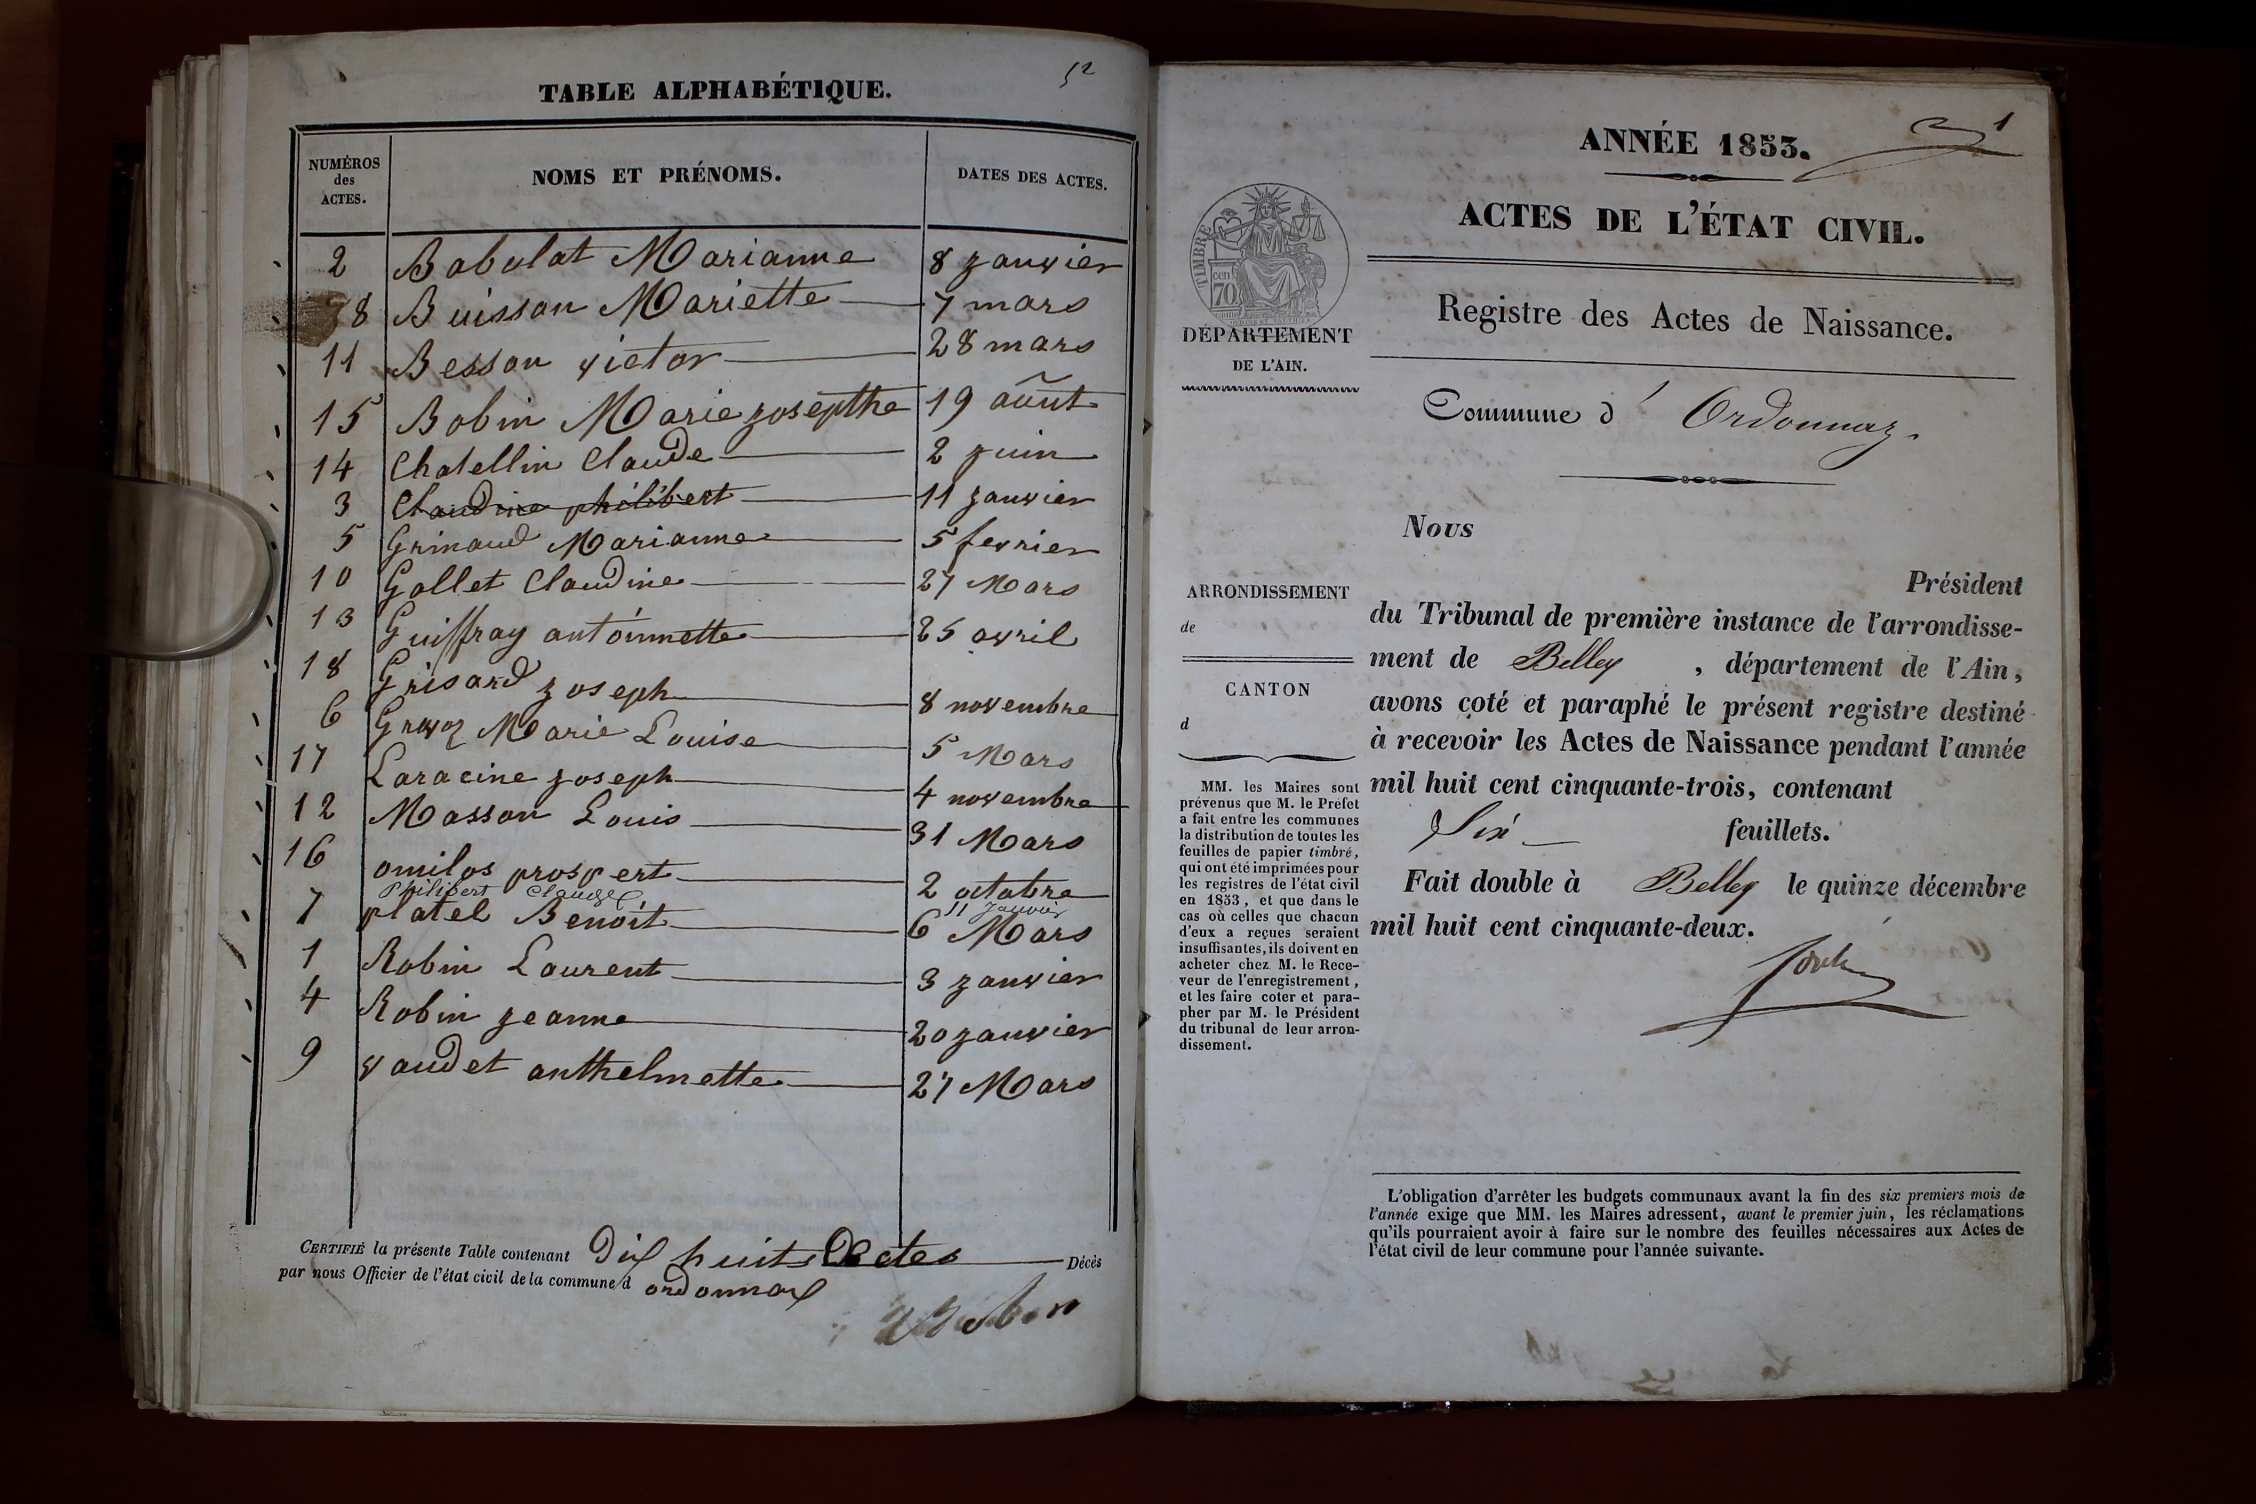 TABLE ALPHABÉTIQUE.
52
NUMÉROS
des
ACTES.
NOMS ET PRÉNOMS.
DATES DES ACTES.
2 Babolat Marianne 8 janvier
8 Buisson Mariette 7 mars
11 Besson victor 28 mars
15 Bobin Marie josepthe 19 août
14 Chatellin Claude 2 juin
3 Claudine philibert 11 janvier
5 Grinaud Marianne 5 fevrier
10 Gallet Claudine 27 Mars
13 Guiffray antoinnette 25 avril
18 Grisard joseph 8 novembre
6 Gravoz Marie Louise 5 Mars
17 Laracine joseph 4 novembre
12 Masson Louis 31 Mars
16 omilos prospert 2 octobre
Philibert Claude 11 Janvier
7 platel Benoit 6 Mars
1 Robin Laurent 3 janvier
4 Robin jeanne 20 janvier
9 vaudet anthelmette 27 Mars
CERTIFIÉ la présente Table contenant Dix huit Actes Décès
par nous Officier de l'état civil de la commune d ordonnax
1
ANNÉE 1853.
ACTES DE L'ÉTAT CIVIL.
TIMBRE
cent
70
DÉPARTEMENT
DE L'AIN.
Registre des Actes de Naissance.
Commune d' Ordonnaz.
Nous
Président
du Tribunal de première instance de l'arrondisse-
ment de Belley , département de l'Ain,
avons coté et paraphé le présent registre destiné
à recevoir les Actes de Naissance pendant l'année
mil huit cent cinquante-trois, contenant
Six feuillets.
Fait double à Belley le quinze décembre
mil huit cent cinquante-deux.
ARRONDISSEMENT
de
CANTON
d
MM. les Maires sont
prévenus que M. le Préfet
a fait entre les communes
la distribution de toutes les
feuilles de papier timbré,
qui ont été imprimées pour
les registres de l'état civil
en 1853, et que dans le
cas où celles que chacun
d'eux a reçues seraient
insuffisantes, ils doivent en
acheter chez M. le Rece-
veur de l'enregistrement,
et les faire coter et para-
pher par M. le Président
du tribunal de leur arron-
dissement.
L'obligation d'arrêter les budgets communaux avant la fin des six premiers mois de
l'année exige que MM. les Maires adressent, avant le premier juin, les réclamations
qu'ils pourraient avoir à faire sur le nombre des feuilles nécessaires aux Actes de
l'état civil de leur commune pour l'année suivante.